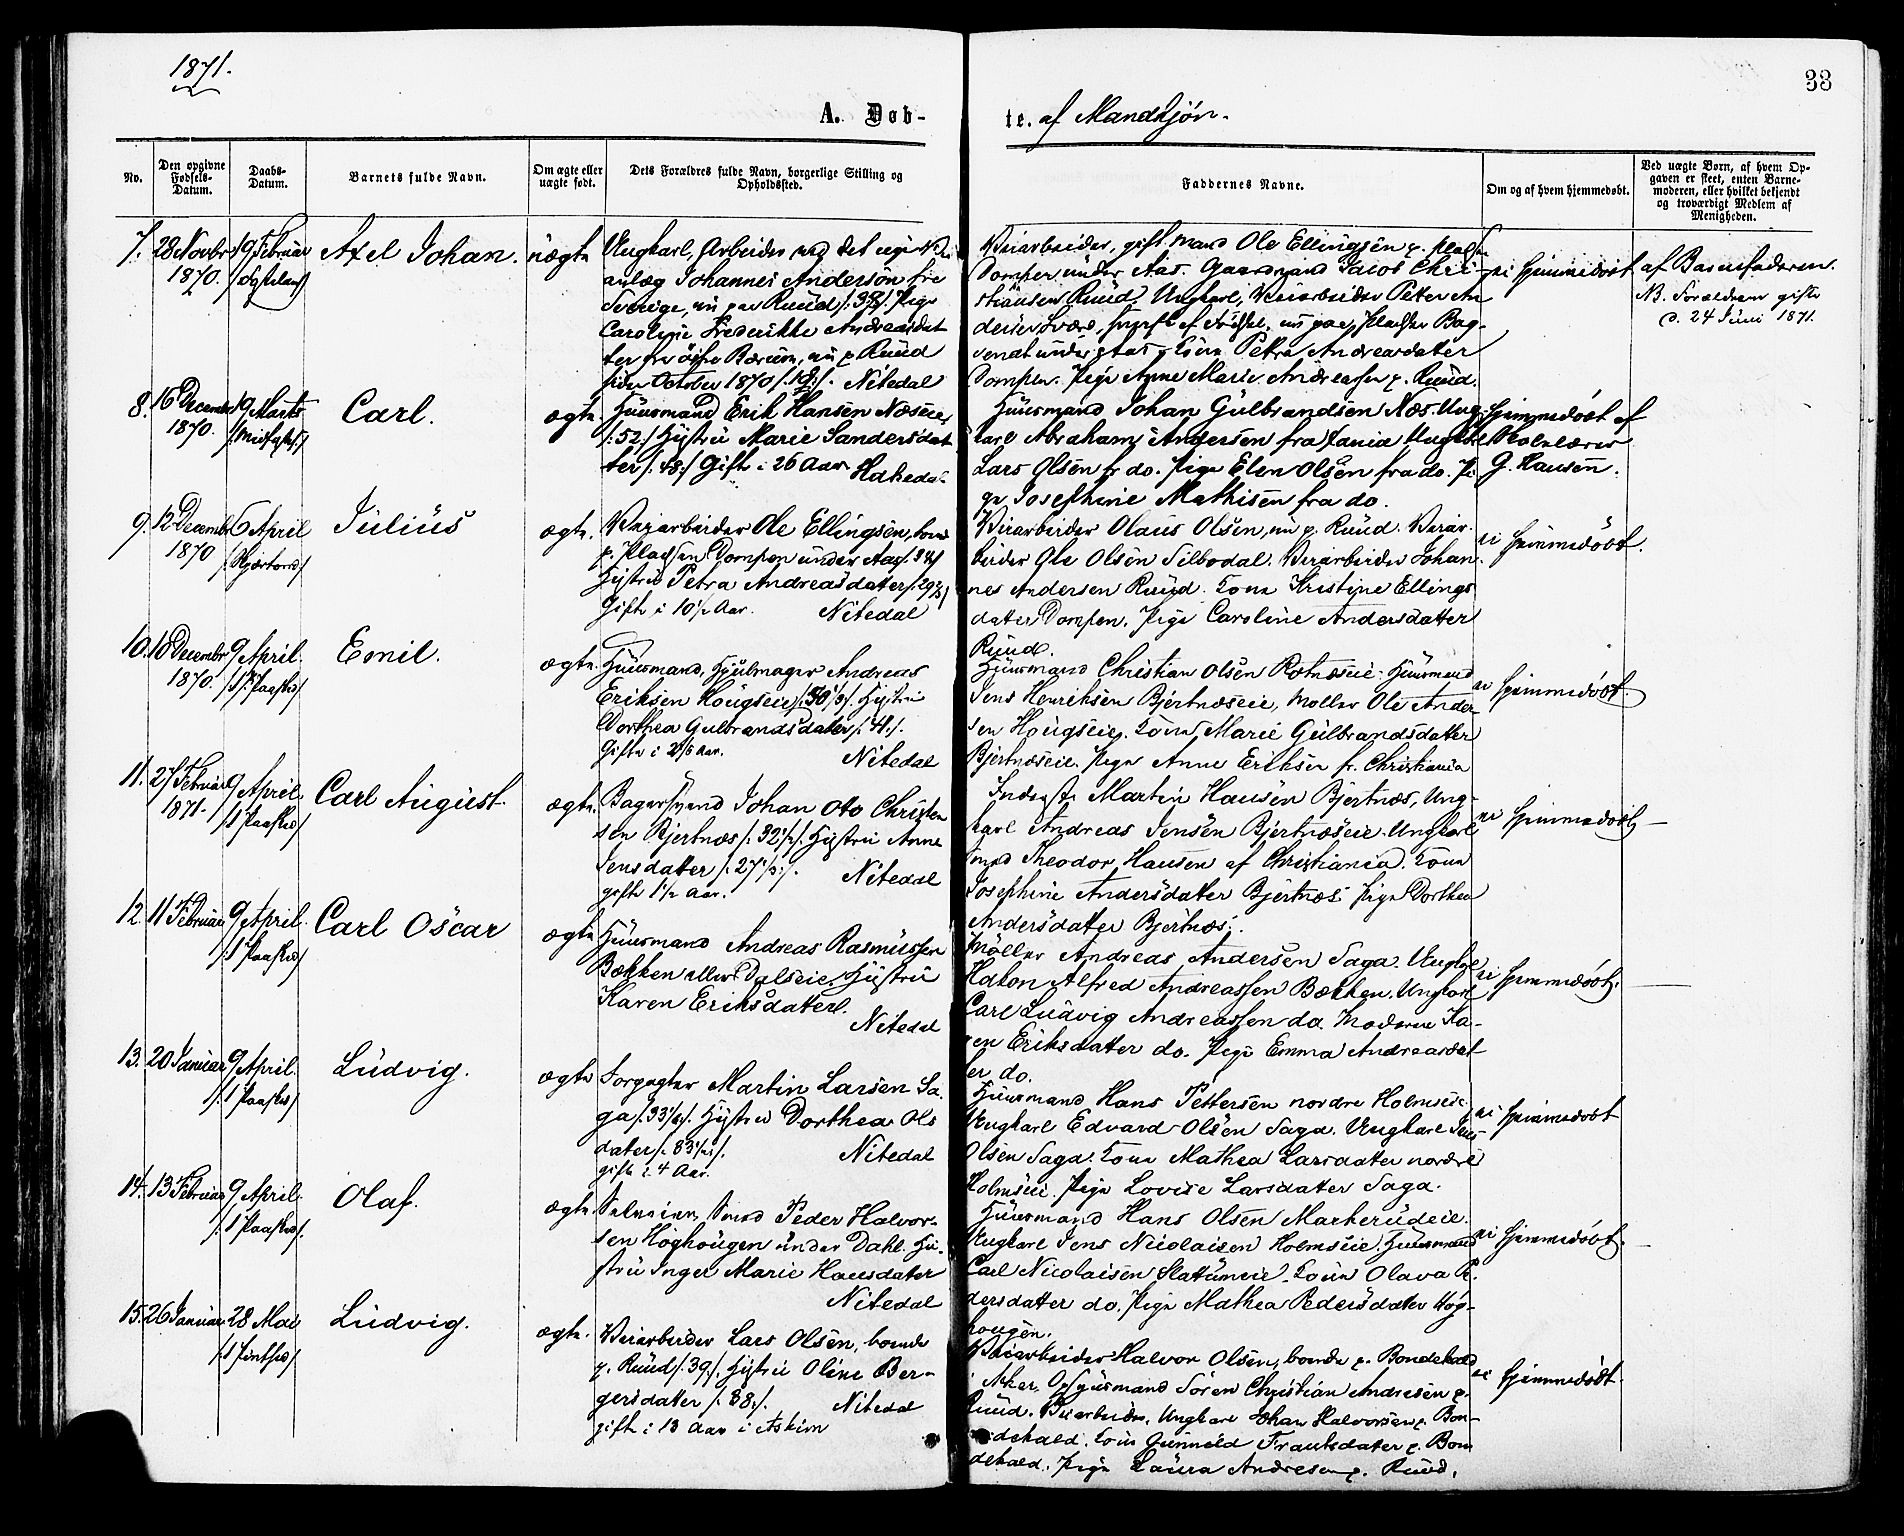 1871.
33
A. Døb-
te. af Mandkjøn.
No.
Den opgivne Fødsels-Datum.
Daabs-Datum.
Barnets fulde Navn.
Om ægte eller uægte født.
Dets Forældres fulde Navn, borgerlige Stilling og Opholdssted.
Faddernes Navne.
Om og af hvem hjemmedøbt.
Ved uægte Børn, af hvem Opgaven er skeet, enten Barnemoderen, eller hvilket bekjendt og troværdigt Medlem af Menigheden.
7. 28 Novbr 1870. 19 Februar Axel Johan. uægte
Ungkarl, Arbeider ved det nye
anlæg Johannes Anderson fra
Sverige, nu paa Ruud /:32:/. Pige
Caroline Frederikke Andreasdat
ter fra østre Bærum, nu p. Ruud
siden October 1870 /:19:/. Nitedal
Veiarbeider, gift Mand Ole Ellingsen p. Pladsen
Dompen under Aas. Gaardmand Jacob Chri-
stiansen Ruud. Ungkarl, Veiarbeider Petter An
dersen nu paa Pladsen Bag-
under Aas Kone Petra Andreasdatter
Dompen. Pige Anne Marie Andreasen p. Ruud.
ei hjemmedøbt
af Barnefaderen.
NB. Forældrene gifte
d. 24 Juni 1871.
8. 16 Decembr 1870. 19 Marts /:Midfaste:/ Carl. ægte
Huusmand Erik Hansen Næseie
/:52:/ Hustru Marie Sandersdat
ter /:48:/ Gifte i 26 Aar Hakedal
Huusmand Johan Gulbrandsen Næs. Ung-
karl Abraham Andersen fra Tania Ungkarl
Lars Olsen fr do. Pige Elen Olsen fra do. Pi
ge Josephine Mathisen fra do.
hjemmedøbt af
Skolelærer
G. Hansen.
9. 12 Decembr 1870 6 April /:Skjærtorsd:/ Julius ægte.
Veiarbeider Ole Ellingsen, boende
p. Pladsen Dompen under Aas /:34:/
Hustru Petra Andreasdatter /:29½:/
Gifte i 10½ Aar. Nitedal
Veiarbeider Olaus Olsen, nu p. Ruud. Veiar-
beider Ole Olsen Silbodal. Veiarbeider Johan-
nes Andersen Ruud. Kone Kristine Ellings
datter Dompen. Pige Caroline Andersdatter
Ruud.
ei hjemmedøbt.
10. 18 Decembr 1870. 9 April. /:1 Paasked:/ Emil. ægte.
Huusmand, Hjulmager Andreas
Eriksen Hougseie Hustru
Dorthea Gulbrandsdatter /:41:/.
Gifte i Aar. Nitedal
Huusmand Christian Olsen Rotnæseie. Huusmand
Jens Henriksen Bjertnæseie, Møller Ole Ander-
sen Hougseie. Kone Marie Gulbrandsdatter
Bjertnæseie. Pige Anne Eriksen fr. Christiania
ei hjemmedøbt.
11. 27 Februar 1871. 9 April. /:1 Paasked:/ Carl August. ægte.
Bagersvend Johan Oto Christen
sen Bjertnæs /:32½:/. Hustru Anne
Jensdatter /:27½:/. Nitedal
gifte 1½ Aar.
Inderste Martin Hansen Bjertnæs, Ung-
karl Andreas Jensen Bjertnæseie. Ungkarl
Smed Theodor Hansen af Christiania. Kone
Josephine Andersdatter Bjertnæs. Pige Dorthea
Andersdatter Bjertnæs.
ei hjemmedøbt
12. 11 Februar 9 April. /:1 Paasked:/ Carl Oscar ægte
Huusmand Andreas Rasmussen
Bækken eller Dalseie. Hustru
Karen Eriksdatter.
Nitedal
Møller Andreas Andersen Saga. Ungkarl
Hakon Alfred Andreassen Bækken. Ungkarl
Carl Ludvig Andreassen do. Moderen Ka-
ren Eriksdatter do. Pige Emma Andreasdat
er do.
ei hjemmedøbt.
13. 20 Januar 9 April. /:1 Paasked:/ Ludvig. ægte
Forpagter Martin Larsen Sa-
ga Hustru Dorthea Ols
datter Nitedal
gifte i 4 Aar.
Huusmand Hans Pettersen nordre Holmseie.
Ungkarl Edvard Olsen Saga. Ungkarl Jens
Olsen Saga. Kone Mathea Larsdatter nordre
Holmseie. Pige Lovise Larsdatter Saga.
ei hjemmedøbt
14. 13 Februar 9 April. /:1 Paasked:/. Olaf. ægte.
Smed Peder Halvor-
sen Høghougen under Dahl. Hu-
stru Inger Marie Hansdatter
Nitedal
Huusmand Hans Olsen Markerudeie.
Ungkarl Jens Nicolaisen Holmseie. Huusmand
Carl Nicolaisen Slattumeie. Kone Olava P.
dersdatter do. Pige Mathea Pedersdatter Høg-
hougen.
ei hjemmedøbt.
15. 26 Januar 28 Mai /:1 Pintsed:/ Ludvig. ægte.
Veiarbeider Lars Olsen, boende
p. Ruud /:39:/. Hustru Oline Ber-
gersdatter /:38:/. Nitedal
gift i 13 Aar i Askim
Veiarbeider Halvor Olsen, boende p. Bondekald
i Aker. Huusmand Søren Christian Andresen p.
Ruud. Veiarbeider, Ungkarl Johan Halvorsen p. Bon-
dekald. Kone Gunnild Frantsdatter p. Bon
dekald. Pige Laura Andresen p. Ruud.
ei hjemmedøbt.